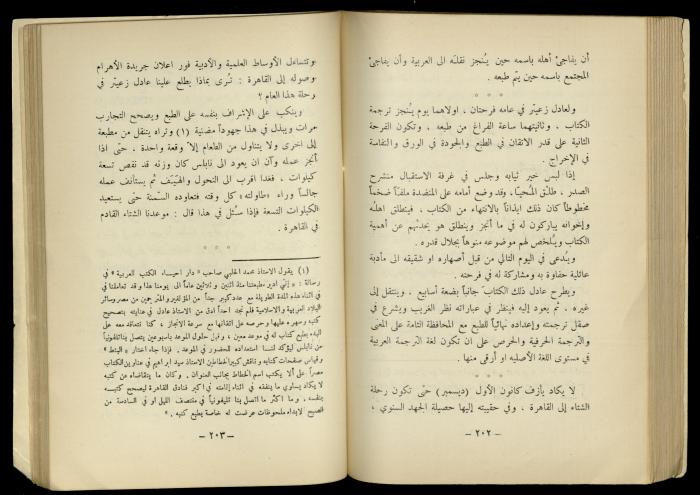 أن يفاجئ أهله باسمه حين يُنجز نقله الى العربية وأن يفاجئ
المجتمع باسمه حين يتم طبعه .
* * *
ولعادل زعيتر في عامه فرحتان ، اولاهما يوم يُنجز ترجمة
الكتاب ، وثانيتهما ساعة الفراغ من طبعه ، وتكون الفرحة
الثانية على قدر الاتقان في الطبع والجودة في الورق والنفاسة
في الإخراج .
إذا لبس خير ثيابه وجلس في غرفة الاستقبال منشرح
الصدر ، طلق المُحيّا، وقد وضع أمامه على المنضدة ملفّاً ضخماً
مخطوطاً كان ذلك ايذاناً بالانتهاء من الكتاب ، فينطلق اهله
وإخوانه يباركون له في ما أنجز وينطلق هو يحدثهم عن أهمية
الكتاب ويُلخص لهم موضوعه منوهاً بجلال قدره .
ويُدعى في اليوم التالي من قبل أصهاره او شقيقه الى مأدبة
عائلية حفاوة به ومشاركة له في فرحته .
ويطرح عادل ذلك الكتاب جانباً بضعة أسابيع ، وينتقل إلى
غيره ، ثم يعود إليه فينظر في عباراته نظر الغريب ويشرع في
صقل ترجمته وإعداده نهائياً للطبع مع المحافظة التامة على المعنى
والترجمة الحرفية والحرص على ان تكون لغة الترجمة العربية
في مستوى اللغة الأصلية او أرقى منها .
* * *
لا يكاد يأزف كانون الأول (ديسمبر) حتى تكون رحلة
الشتاء إلى القاهرة ، وفي حقيبته إليها حصيلة الجهد السنوي ،
— ٢٠٢ —
وتتساءل الأوساط العلمية والأدبية فور اعلان جريدة الأهرام
وصوله إلى القاهرة : تُرى بماذا يطلع علينا عادل زعيتر في
رحلة هذا العام ؟
وينكب على الإشراف بنفسه على الطبع ويصحح التجارب
مرات ويبذل في هذا جهوداً مضنية (١) وتراه يتنقل من مطبعة
إلى اخرى ولا يتناول من الطعام إلا وقعة واحدة ، حتى اذا
أنجز عمله وآن ان يعود الى نابلس كان وزنه قد نقص تسعة
كيلوات ، فغدا اقرب الى النحول والهَيَف ثم يستأنف عمله
جالساً وراء «طاولته» كل وقته فتعاوده السمنة حتى يستعيد
الكيلوات التسعة فإذا سُئل في هذا قال : موعدنا الشتاء القادم
في القاهرة .
* * *
(١) يقول الاستاذ محمد الحلبي صاحب « دار احياء الكتب العربية » في
رسالة : « إنني ادير مطبعتنا منذ اثنين و ثلاثين عاماً الى يومنا هذا و قد تعاملنا في
اثناء هذه المدة الطويلة مع عدد كبير جداً من المؤلفين و المترجمين من مصر وسائر
البلاد العربية و الاسلامية فلم نجد احداً ادق من الاستاذ عادل في عنايته بتصحيح
كتبه و سهره عليها و حرصه على اتقانها مع سرعة الانجاز ، كنا نتعاقد معه على
البدء بطبع كتاب له في موعد معين ، و قبل حلول الموعد باسبوعين يتصل بنا تلفونياً
من نابلس ليؤكد لنا استعداده للحضور في الموعد . فإذا جاء اختار « البنط »
و قياس صفحات كتابه و ناقش كبير الخطاطين الاستاذ سيد ابراهيم في عناوين الكتاب
مصراً على ألا يكتب اسم الخطاط بجانب العنوان . وكان ما يتقاضاه من كتبه
لا يكاد يساوي ما ينفقه في اثناء إقامته في اكبر فنادق القاهرة ليصحح كتبه
بنفسه . و ما اكثر ما اتصل بنا تليفونياً في منتصف الليل او في السادسة من
الصبح لابداء ملحوظات عرضت له خاصة بطبع كتبه . »
— ٢٠٣ —